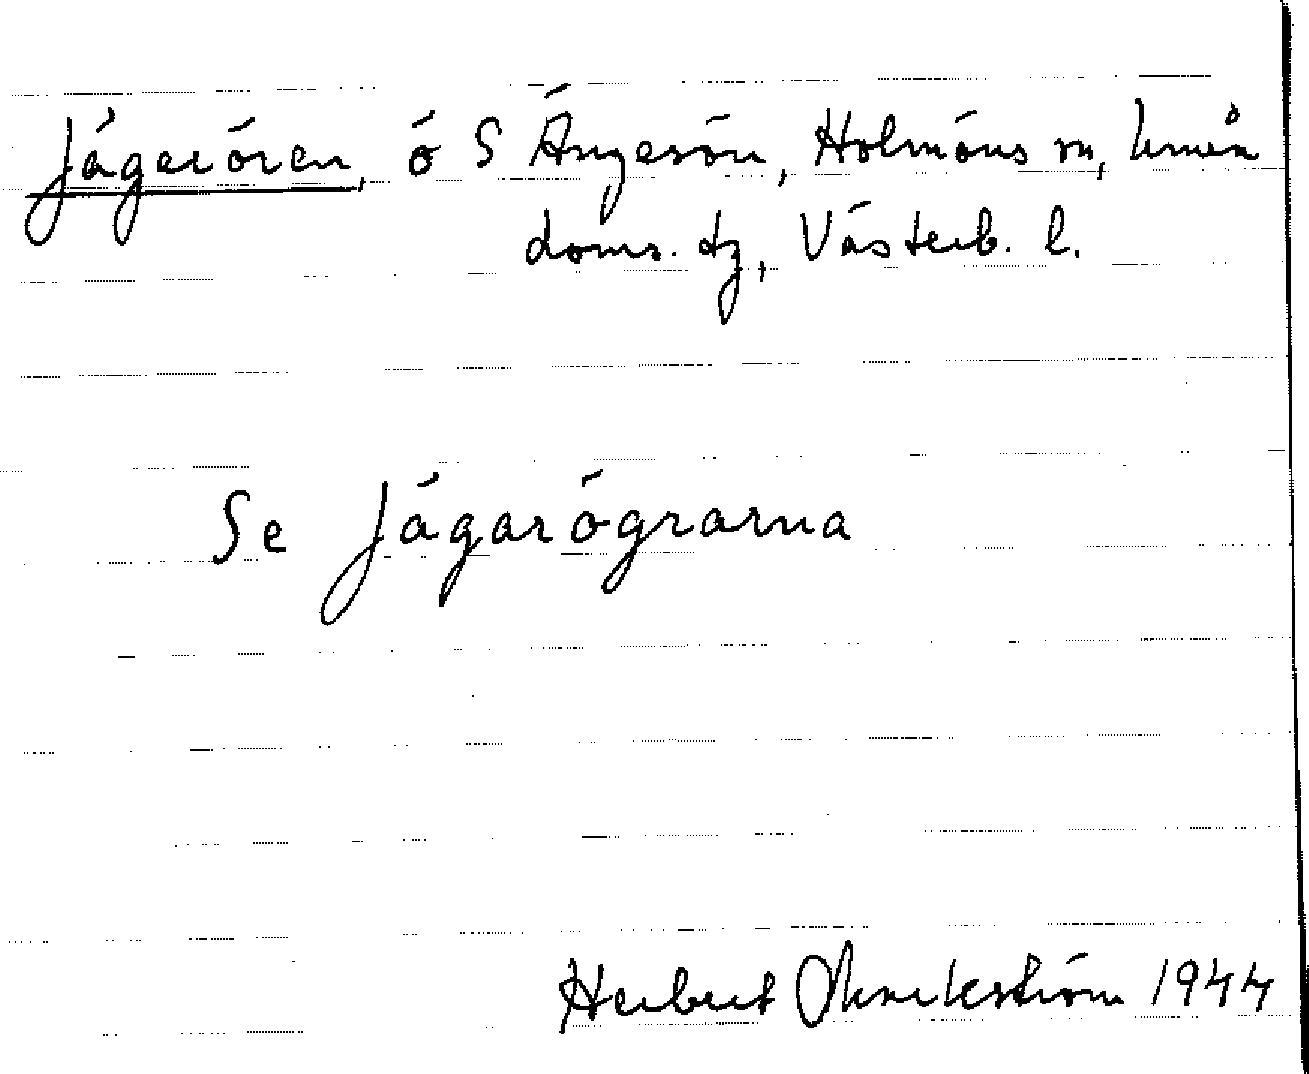 Jägarören, ö S Ängesön, Holmöns sn, Umeå
doms. tg, Västerb. l.
Se Jägarögrarna
Herbert 1944